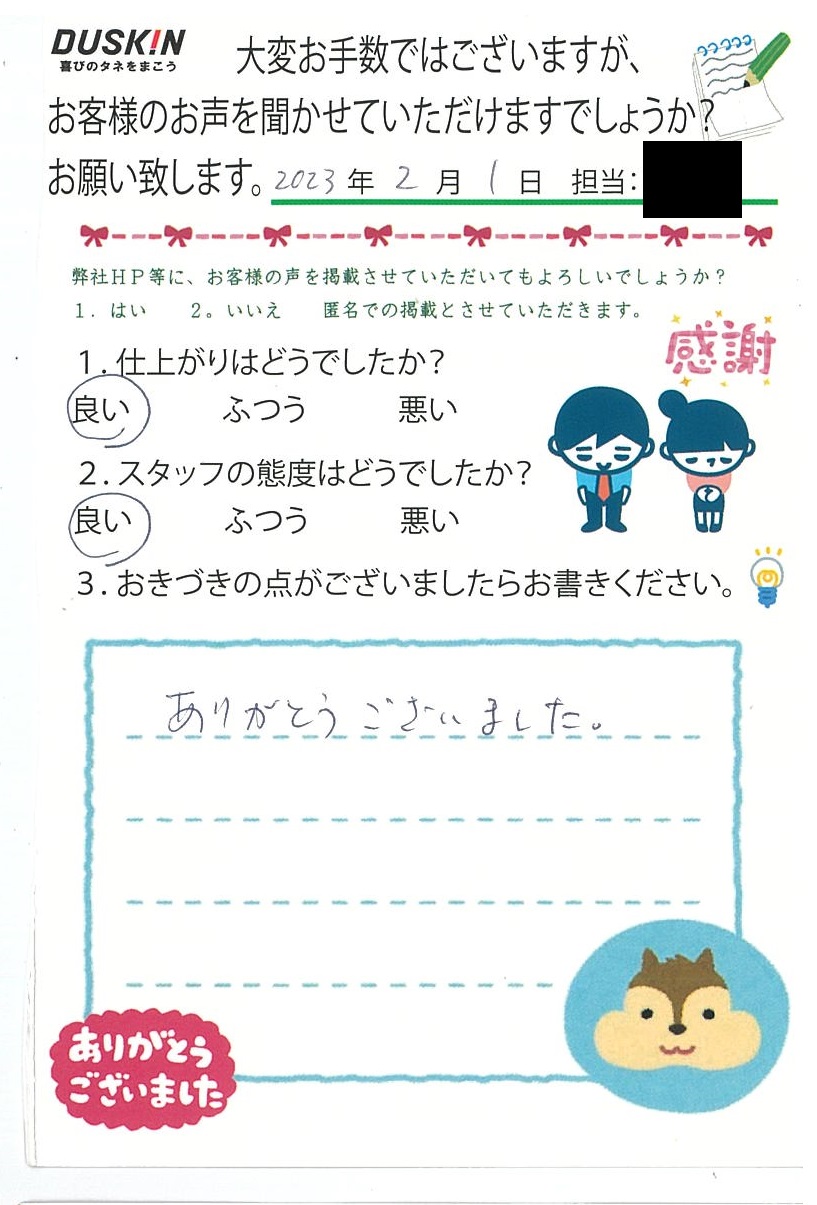 DUSK!N
喜びのタネをまこう
大変お手数ではございますが、
お客様のお声を聞かせていただけますでしょうか?
お願い致します。2023年 2 月 1 日 担当:
弊社HP等に、お客様の声を掲載させていただいてもよろしいでしょうか?
1. はい 2。いいえ 匿名での掲載とさせていただきます。
感謝
1.仕上がりはどうでしたか?
良い ふつう 悪い
2.スタッフの態度はどうでしたか?
良い ふつう 悪い
3.おきづきの点がございましたらお書きください。
ありがとうございました。
ありがとう
ございました